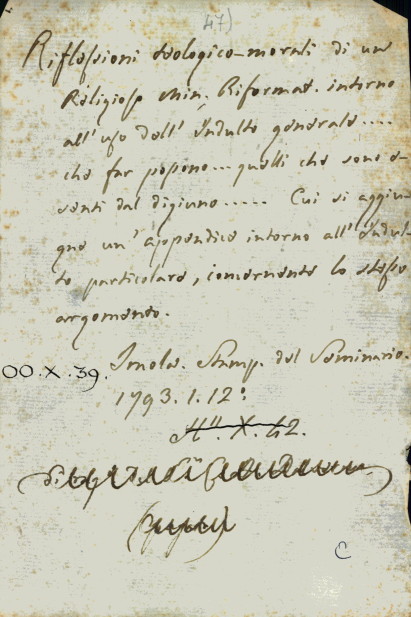 47)
Riflessioni teologico-morali di un
Religioso Min. Riformat. intorno
all'uso dell'Indulto generale....
che far possono... quelli che sono e-
senti dal digiuno..... Cui si aggiun-
gne un'appendice intorno all'Indul-
to particolare, concernente lo stesso
argomento.
Imola. Stamp. del Seminario.
OO.X.39.
1793. 1. 12°
H". X. 42.
C